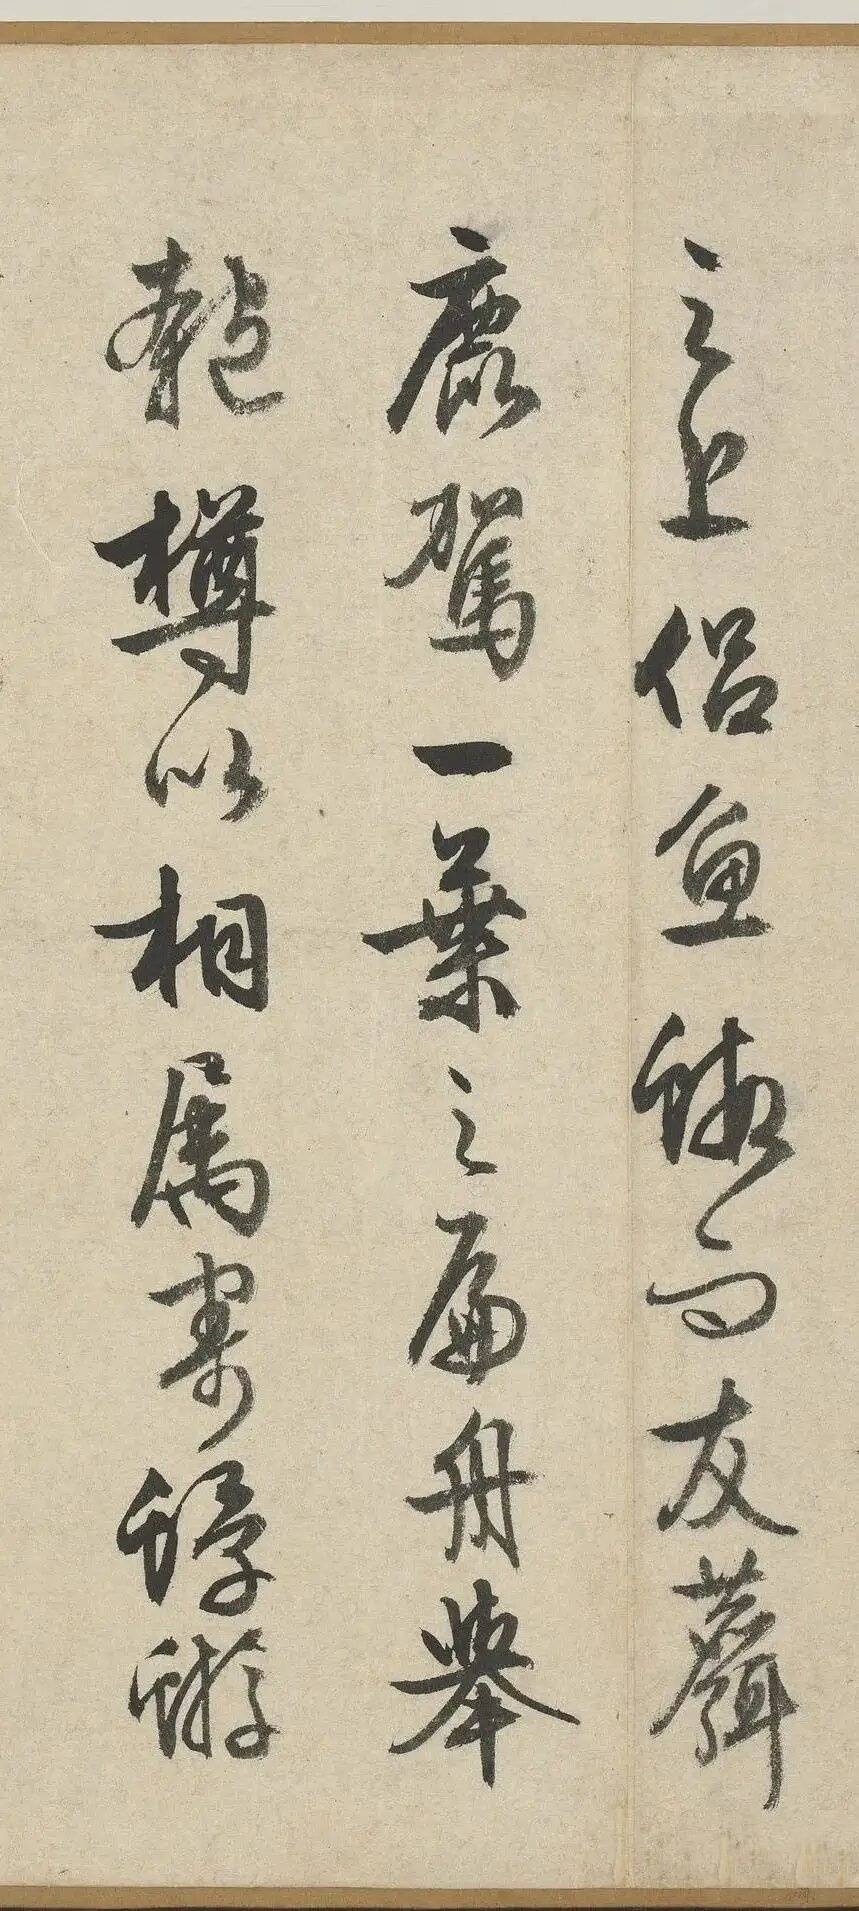 之上侶魚蝦而友麛
鹿駕一葉之扁舟舉
匏樽以相属寄蜉蝣